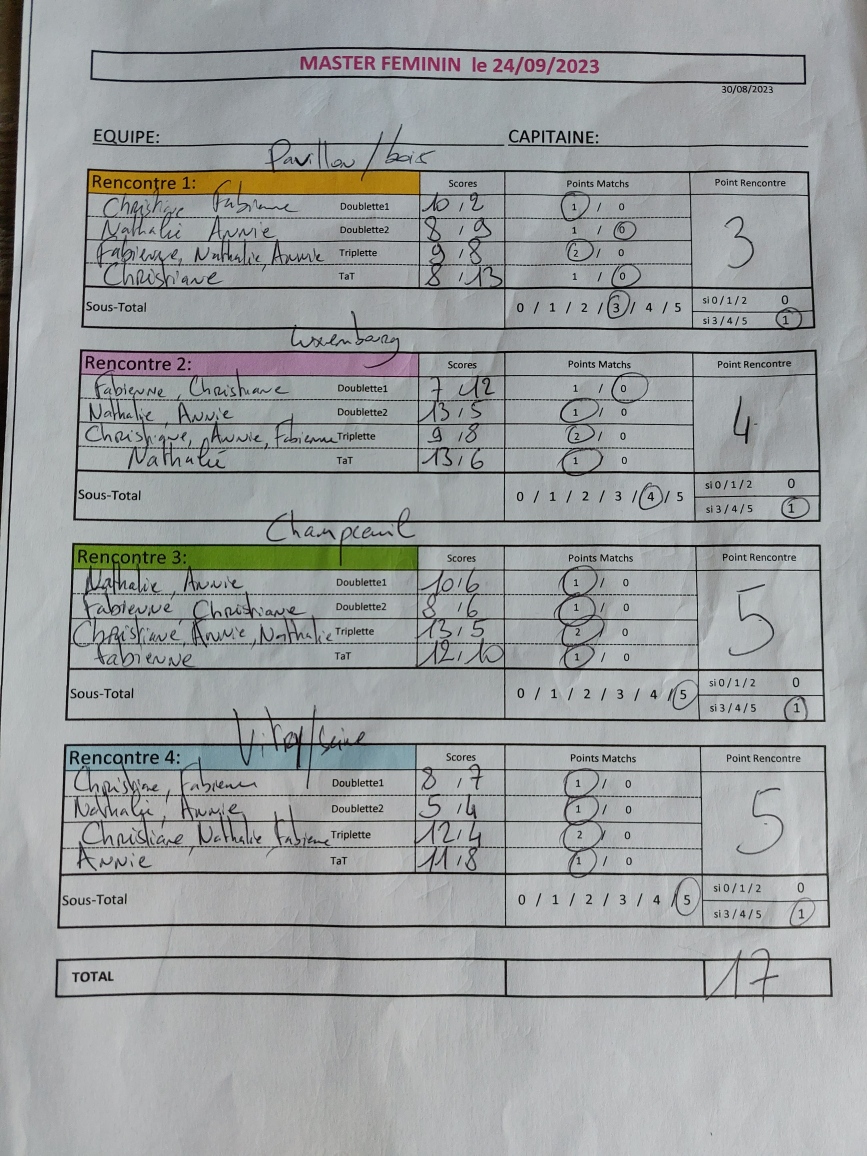 MASTER FEMININ le 24/09/2023
30/08/2023
EQUIPE: CAPITAINE:
Pavillon/bois
Rencontre 1: Scores Points Matchs Point Rencontre
Christiane Fabienne Doublette1 10 / 2 1 / 0
Nathalie Annie Doublette2 8 / 9 1 / 0
Fabienne, Nathalie, Annie Triplette 9 / 8 2 / 0
Christiane TaT 8 / 13 1 / 0
3
Sous-Total 0 / 1 / 2 / 3 / 4 / 5 si 0 / 1 / 2 0
si 3 / 4 / 5 1
Luxembourg
Rencontre 2: Scores Points Matchs Point Rencontre
Fabienne, Christiane Doublette1 7 / 12 1 / 0
Nathalie, Annie Doublette2 13 / 5 1 / 0
Christiane, Annie, Fabienne Triplette 9 / 8 2 / 0
Nathalie TaT 13 / 6 1 / 0
4
Sous-Total 0 / 1 / 2 / 3 / 4 / 5 si 0 / 1 / 2 0
si 3 / 4 / 5 1
Champceuil
Rencontre 3: Scores Points Matchs Point Rencontre
Nathalie, Annie Doublette1 10 / 6 1 / 0
Fabienne Christiane Doublette2 8 / 6 1 / 0
Christiane, Annie, Nathalie Triplette 13 / 5 2 / 0
Fabienne TaT 12 / 10 1 / 0
5
Sous-Total 0 / 1 / 2 / 3 / 4 / 5 si 0 / 1 / 2 0
si 3 / 4 / 5 1
Vitry/seine
Rencontre 4: Scores Points Matchs Point Rencontre
Christiane, Fabienne Doublette1 8 / 7 1 / 0
Nathalie, Annie Doublette2 5 / 4 1 / 0
Christiane, Nathalie Fabienne Triplette 12 / 4 2 / 0
Annie TaT 11 / 8 1 / 0
5
Sous-Total 0 / 1 / 2 / 3 / 4 / 5 si 0 / 1 / 2 0
si 3 / 4 / 5 1
TOTAL 17